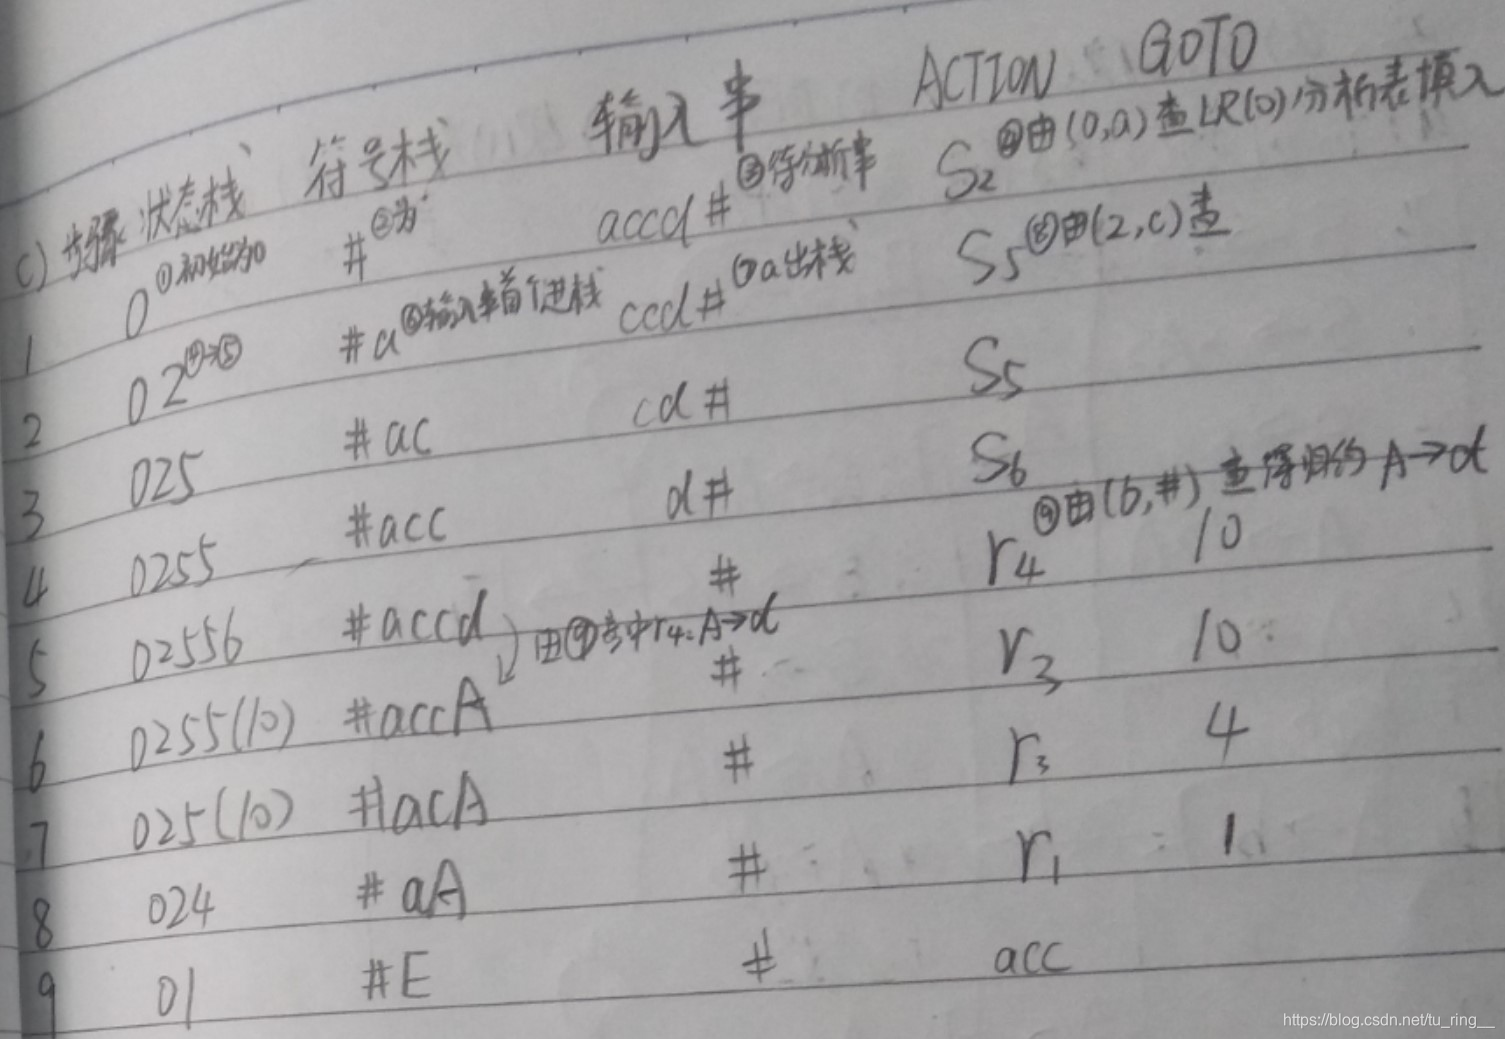 C) 步骤 状态栈 符号栈 输入串 ACTION GOTO
1 0 ①初始为0 # ②为# accd# ③待分析串 S2 ④由(0,a)查LR(0)分析表填入
2 02 ④→⑤ #a ⑥输入串首个进栈 ccd# ⑦a出栈 S5 ⑧由(2,c)查
3 025 #ac cd# S5
4 0255 #acc d# S6
5 02556 #accd # r4 ⑨由(6,#)查得归约A→d 10
由⑨式中r4:A→d
6 0255(10) #accA # r3 10
7 025(10) #acA # r3 4
8 024 #aA # r1 1
9 01 #E # acc
https://blog.csdn.net/tu_ring__